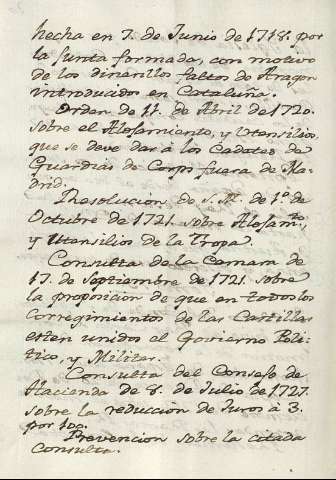 hecha en 7. de Junio de 1718. por
la Junta formada, con motivo
de los dinerillos faltos de Aragon
introducidos en Cataluña.
Orden de 11. de Abril de 1720.
sobre el Alojamiento, y Utensilios,
que se deve dar à los Cadetes de
Guardias de Corps fuera de Ma-
drid.
Resolucion de S. M. de 1.º de
Octubre de 1721. sobre Alojam.to
y Utensilios de la Tropa.
Consulta de la Camara de
17. de Septiembre de 1721. sobre
la proposicion de que en todos los
corregimientos de las Castillas
esten unidos el Govierno Poli-
tico, y Militar.
Consulta del Consejo de
Hacienda de 8. de Julio de 1727.
sobre la reduccion de Juros à 3.
por 100.
Prevencion sobre la citada
Consulta.